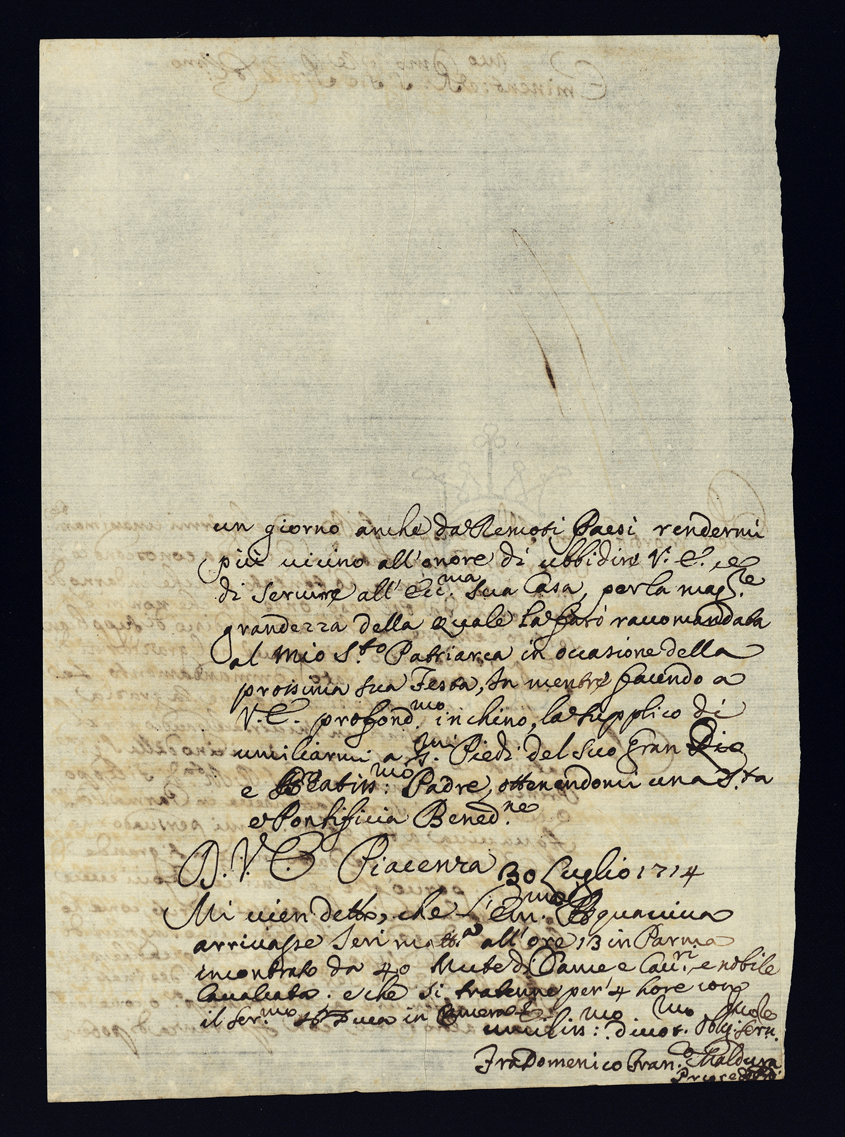 un giorno anche da Remoti Paesi rendermi
più vicino all'onore di ubbidire V. E., e
di servire all' Ecc.ma Sua Casa, per la mag.re
grandezza della quale la farò raccomandata
al Mio S.to Patriarca in occasione della
prossima sua Festa, In mentre facendo a
V. E. profond.mo inchino, la supplico di
umiliarmi a S.mi Piedi del Suo gran Zio
e Beatiss.mo Padre, ottenendomi una S.ta
e Pontificia Bened.ne
D. V. E. Piacenza 30 Luglio 1714
Mi vien detto, che l'Em.mo Aquaviva
arrivasse Seri matt.a all'ore 13 in Parma
incontrato da 40 Mute di Dame e Cav.ri, e nobile
Cavalcata. e che si trattenne per 4 hore con
il Ser.mo Sig. Duca in Camera
umiliss: divot.mo Oblig. Serv.
Fra Domenico Fran.co Maldura